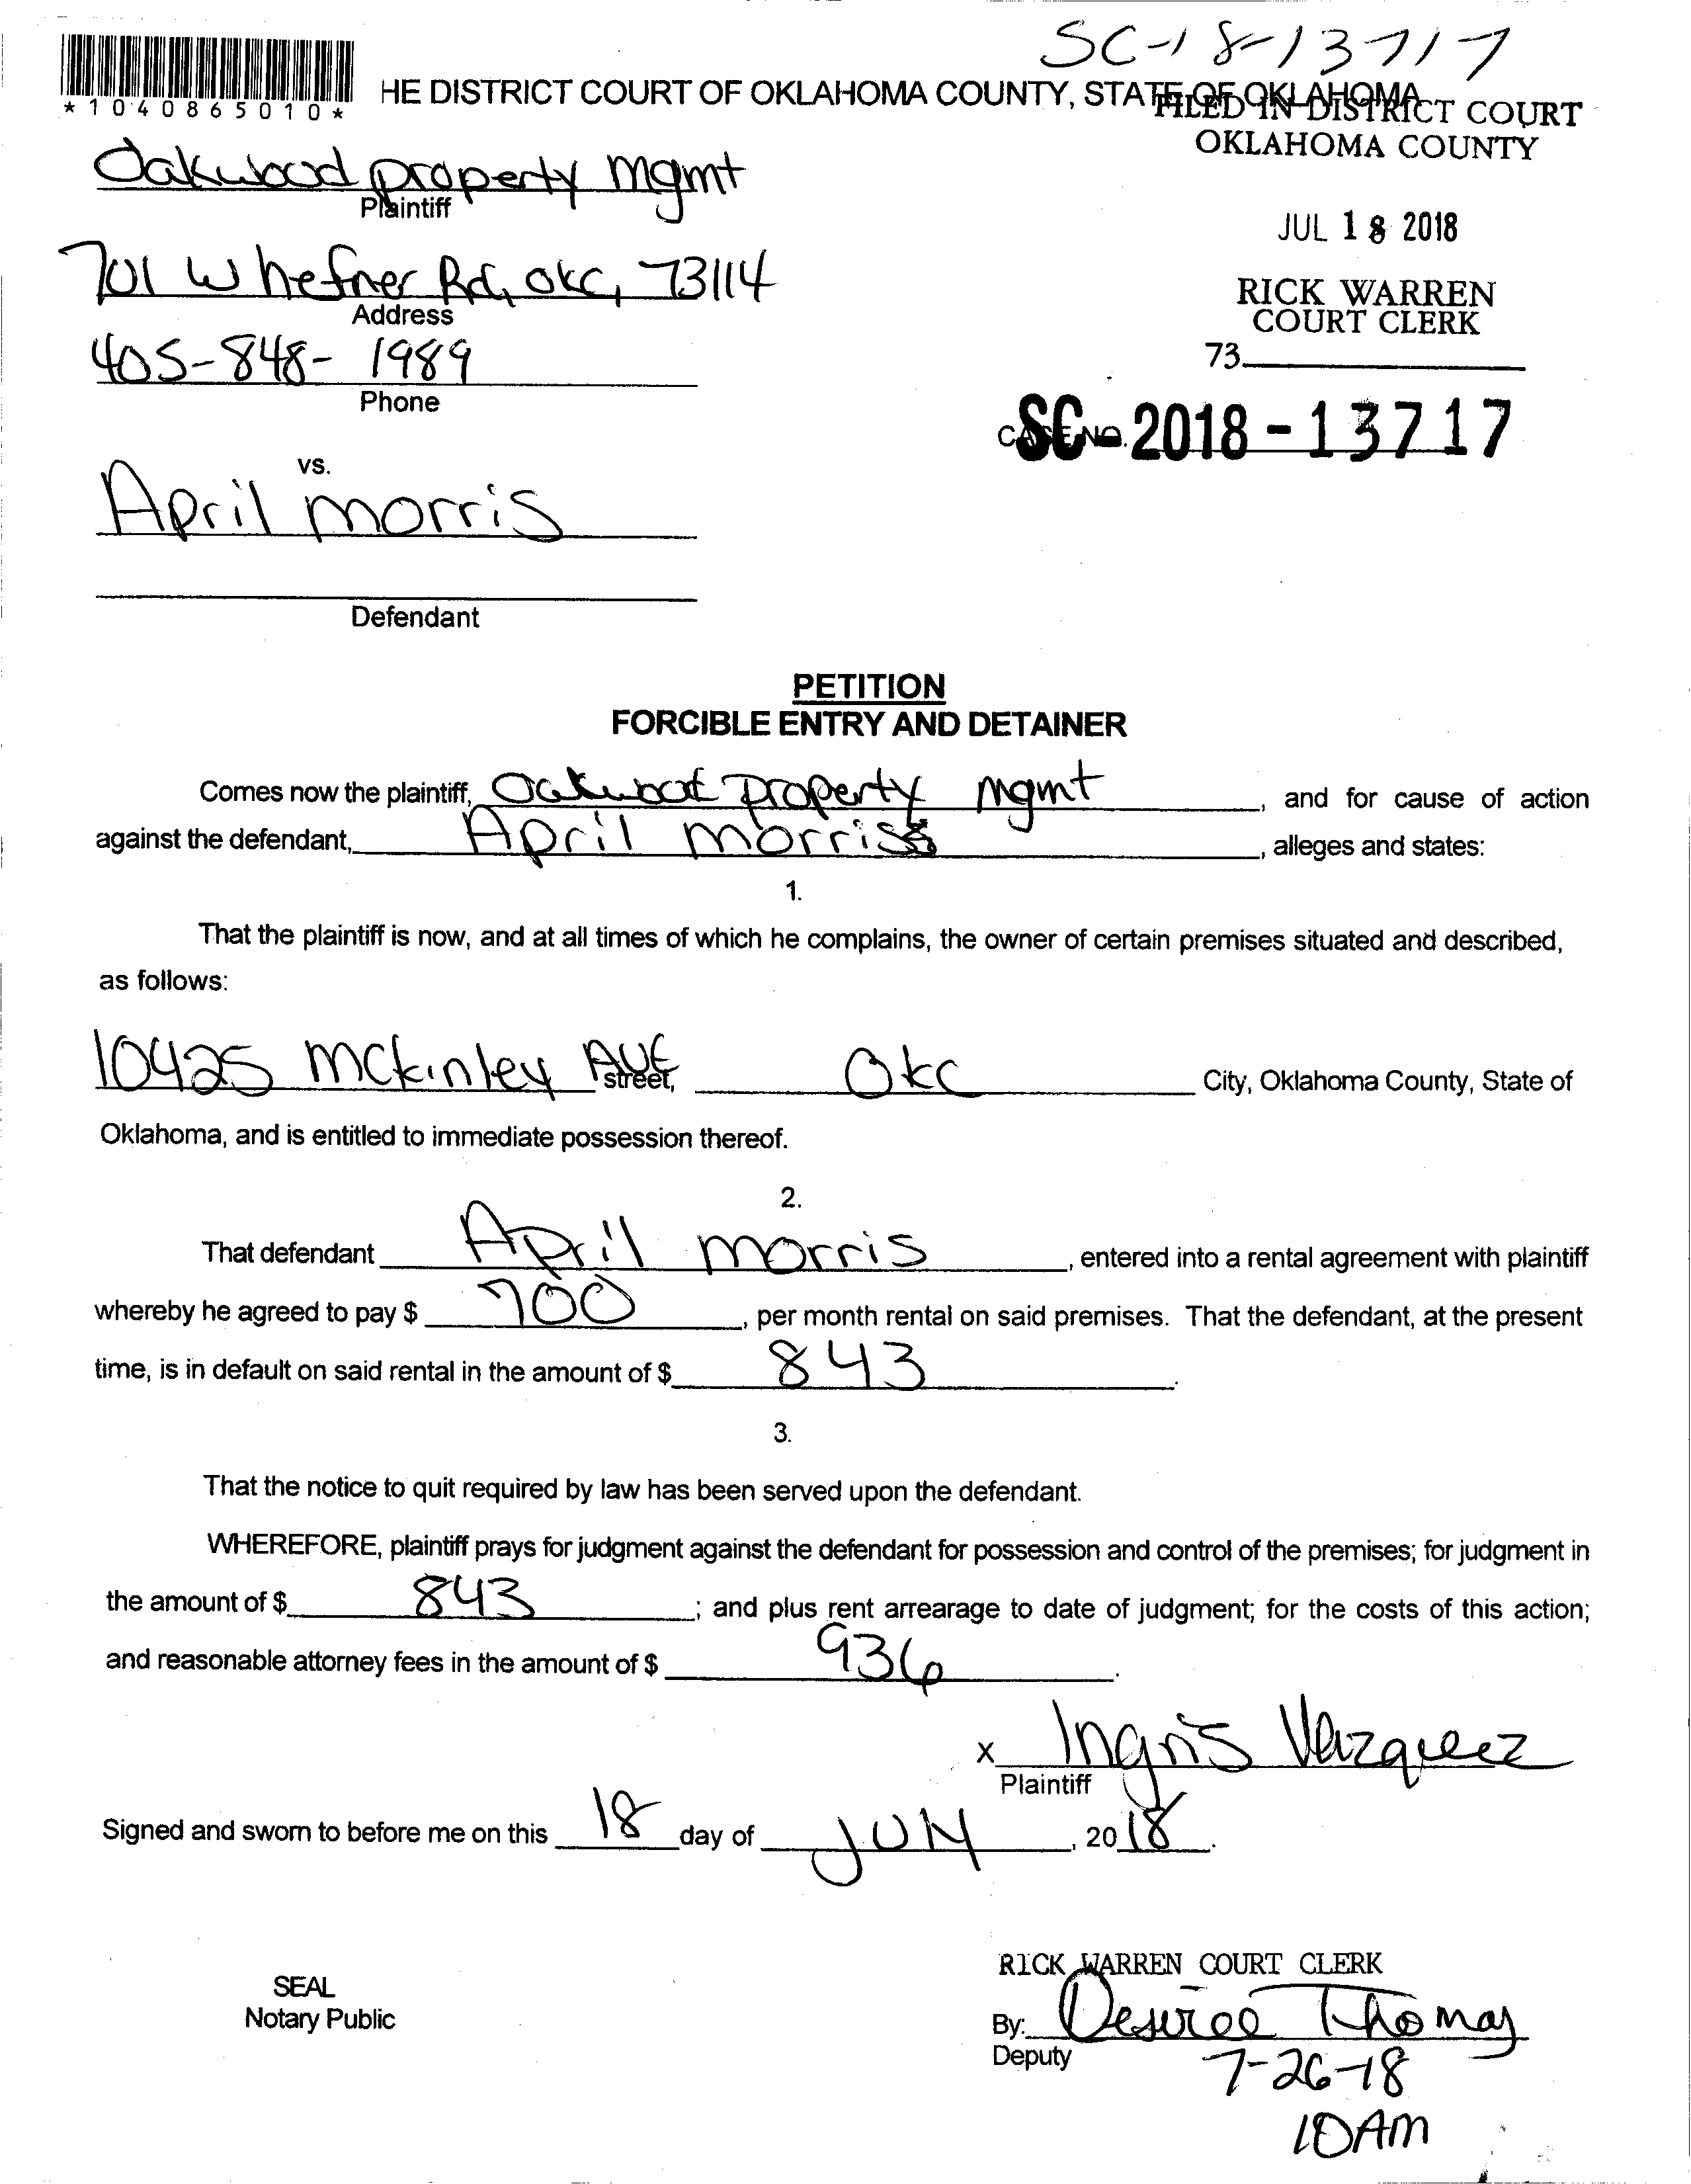 SC-18-13717
*1040865010*
HE DISTRICT COURT OF OKLAHOMA COUNTY, STATE OF OKLAHOMA
FILED IN DISTRICT COURT
OKLAHOMA COUNTY
Oakwood property mgmt
Plaintiff
JUL 18 2018
701 W hefner Rd, OKC, 73114
Address
RICK WARREN
COURT CLERK
405-848-1989
Phone
73
CASE NO.
SC-2018-13717
vs.
April morris
Defendant
PETITION
FORCIBLE ENTRY AND DETAINER
Comes now the plaintiff, Oakwood property mgmt, and for cause of action
against the defendant, April morris, alleges and states:
1.
That the plaintiff is now, and at all times of which he complains, the owner of certain premises situated and described,
as follows:
10425 Mckinley AVE street, OKC City, Oklahoma County, State of
Oklahoma, and is entitled to immediate possession thereof.
2.
That defendant April morris, entered into a rental agreement with plaintiff
whereby he agreed to pay $ 700, per month rental on said premises. That the defendant, at the present
time, is in default on said rental in the amount of $ 843.
3.
That the notice to quit required by law has been served upon the defendant.
WHEREFORE, plaintiff prays for judgment against the defendant for possession and control of the premises; for judgment in
the amount of $ 843; and plus rent arrearage to date of judgment; for the costs of this action;
and reasonable attorney fees in the amount of $ 936.
x Ingris Vazquez
Plaintiff
Signed and sworn to before me on this 18 day of July, 2018.
RICK WARREN COURT CLERK
SEAL
Notary Public
By: Desiree Thomas
Deputy
7-26-18
10AM